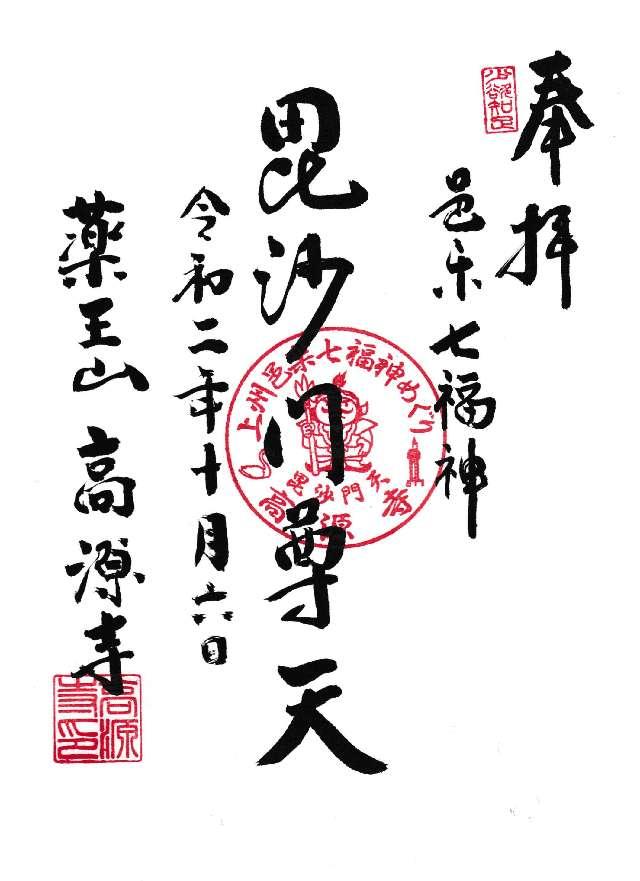 奉拝
少欲知足
邑楽七福神
毘沙門尊天
上州邑楽七福神めぐり
毘沙門天
高源寺
令和二年十月六日
薬王山 高源寺
高源寺印